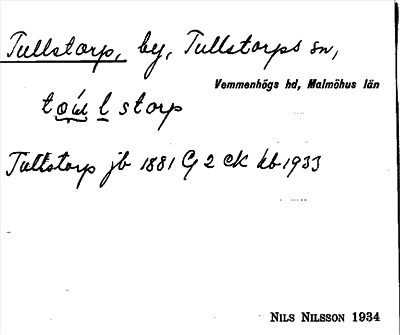 Tullstorp, by, Tullstorps sn,
Vemmenhögs hd, Malmöhus län
toúl storp
Tullstorp jb 1881 G 2 ek kb 1933
NILS NILSSON 1934